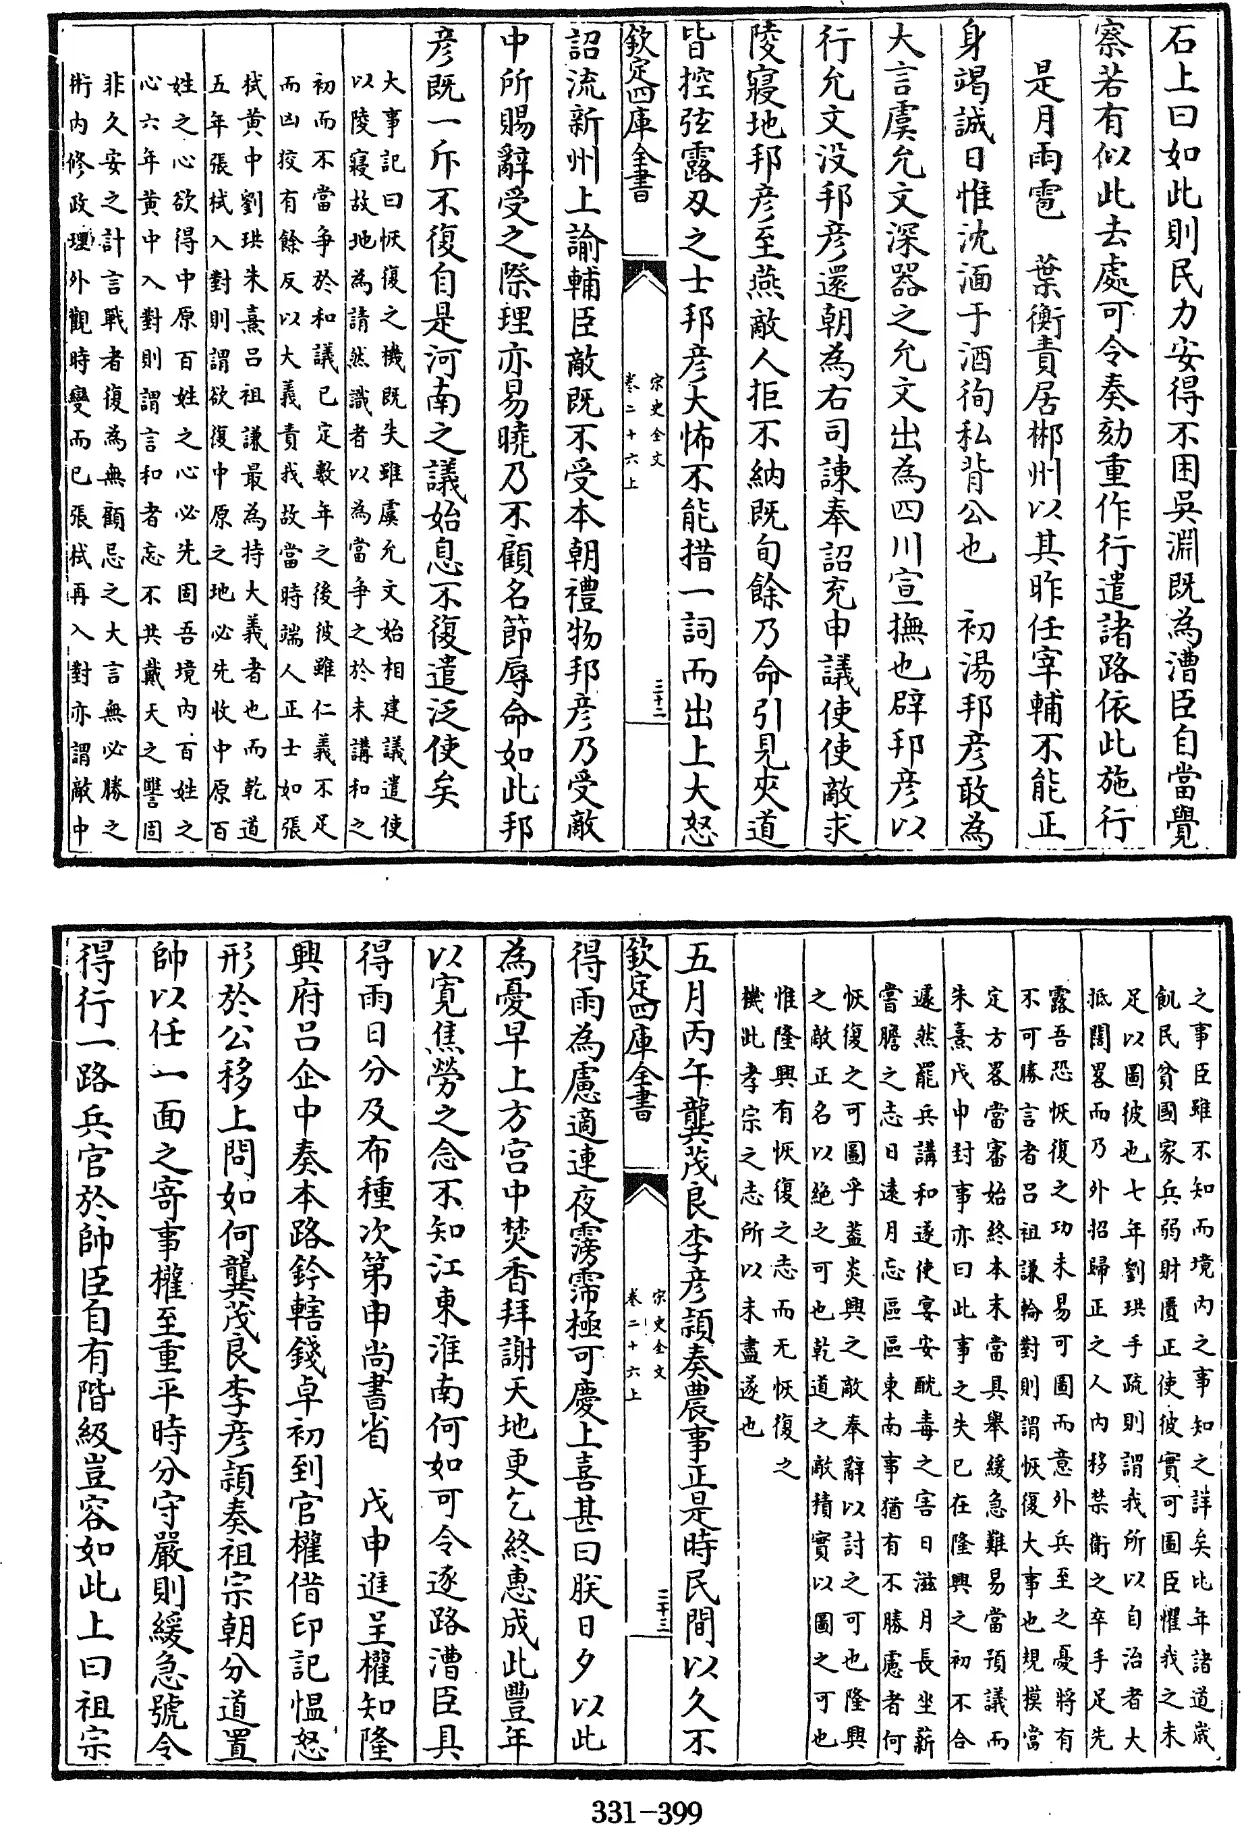 石上曰如此則民力安得不困吳淵既為漕臣自當覺
察若有似此去處可令奏劾重作行遣諸路依此施行
是月雨雹　葉衡責居郴州以其昨任宰輔不能正
身竭誠日惟沈湎于酒徇私背公也　初湯邦彦敢為
大言虞允文深器之允文出為四川宣撫也辟邦彦以
行允文没邦彦還朝為右司諫奉詔充申議使使敵求
陵寢地邦彦至燕敵人拒不納既旬餘乃命引見夾道
皆控弦露刄之士邦彦大怖不能措一詞而出上大怒
欽定四庫全書
宋史全文
卷二十六上
三十二
詔流新州上諭輔臣敵既不受本朝禮物邦彦乃受敵
中所賜辭受之際理亦易曉乃不顧名節辱命如此邦
彦既一斥不復自是河南之議始息不復遣泛使矣
大事記曰恢復之機既失雖虞允文始相建議遣使
以陵寢故地為請然識者以為當争之於未講和之
初而不當争於和議已定數年之後彼雖仁義不足
而凶狡有餘反以大義責我故當時端人正士如張
栻黄中劉珙朱熹吕祖謙最為持大義者也而乾道
五年張栻入對則謂欲復中原之地必先收中原百
姓之心欲得中原百姓之心必先固吾境内百姓之
心六年黄中入對則謂言和者忘不共戴天之讐固
非久安之計言戰者復為無顧忌之大言無必勝之
術内修政理外觀時變而已張栻再入對亦謂敵中
之事臣雖不知而境内之事知之詳矣比年諸道歳
飢民貧國家兵弱財匱正使彼實可圖臣懼我之未
足以圖彼也七年劉珙手疏則謂我所以自治者大
抵闊畧而乃外招歸正之人内移禁衛之卒手足先
露吾恐恢復之功未易可圖而意外兵至之憂將有
不可勝言者吕祖謙輪對則謂恢復大事也規模當
定方畧當審始終本末當具舉緩急難易當預議而
朱熹戊申封事亦曰此事之失已在隆興之初不合
遽然罷兵講和遂使宴安酖毒之害日滋月長坐薪
嘗膽之志日逺月忘區區東南事猶有不勝慮者何
恢復之可圖乎蓋炎興之敵奉辭以討之可也隆興
之敵正名以絶之可也乾道之敵積實以圖之可也
惟隆興有恢復之志而无恢復之
機此孝宗之志所以未盡遂也
五月丙午龔茂良李彦頴奏農事正是時民間以久不
欽定四庫全書
宋史全文
卷二十六上
三十三
得雨為慮適連夜霶霈極可慶上喜甚曰朕日夕以此
為憂早上方宫中焚香拜謝天地更乞終惠成此豐年
以寛焦勞之念不知江東淮南何如可令逐路漕臣具
得雨日分及布種次第申尚書省　戊申進呈權知隆
興府吕企中奏本路鈐轄錢卓初到官權借印記愠怒
形於公移上問如何龔茂良李彦頴奏祖宗朝分道置
帥以任一面之寄事權至重平時分守嚴則緩急號令
得行一路兵官於帥臣自有階級豈容如此上曰祖宗
331-399